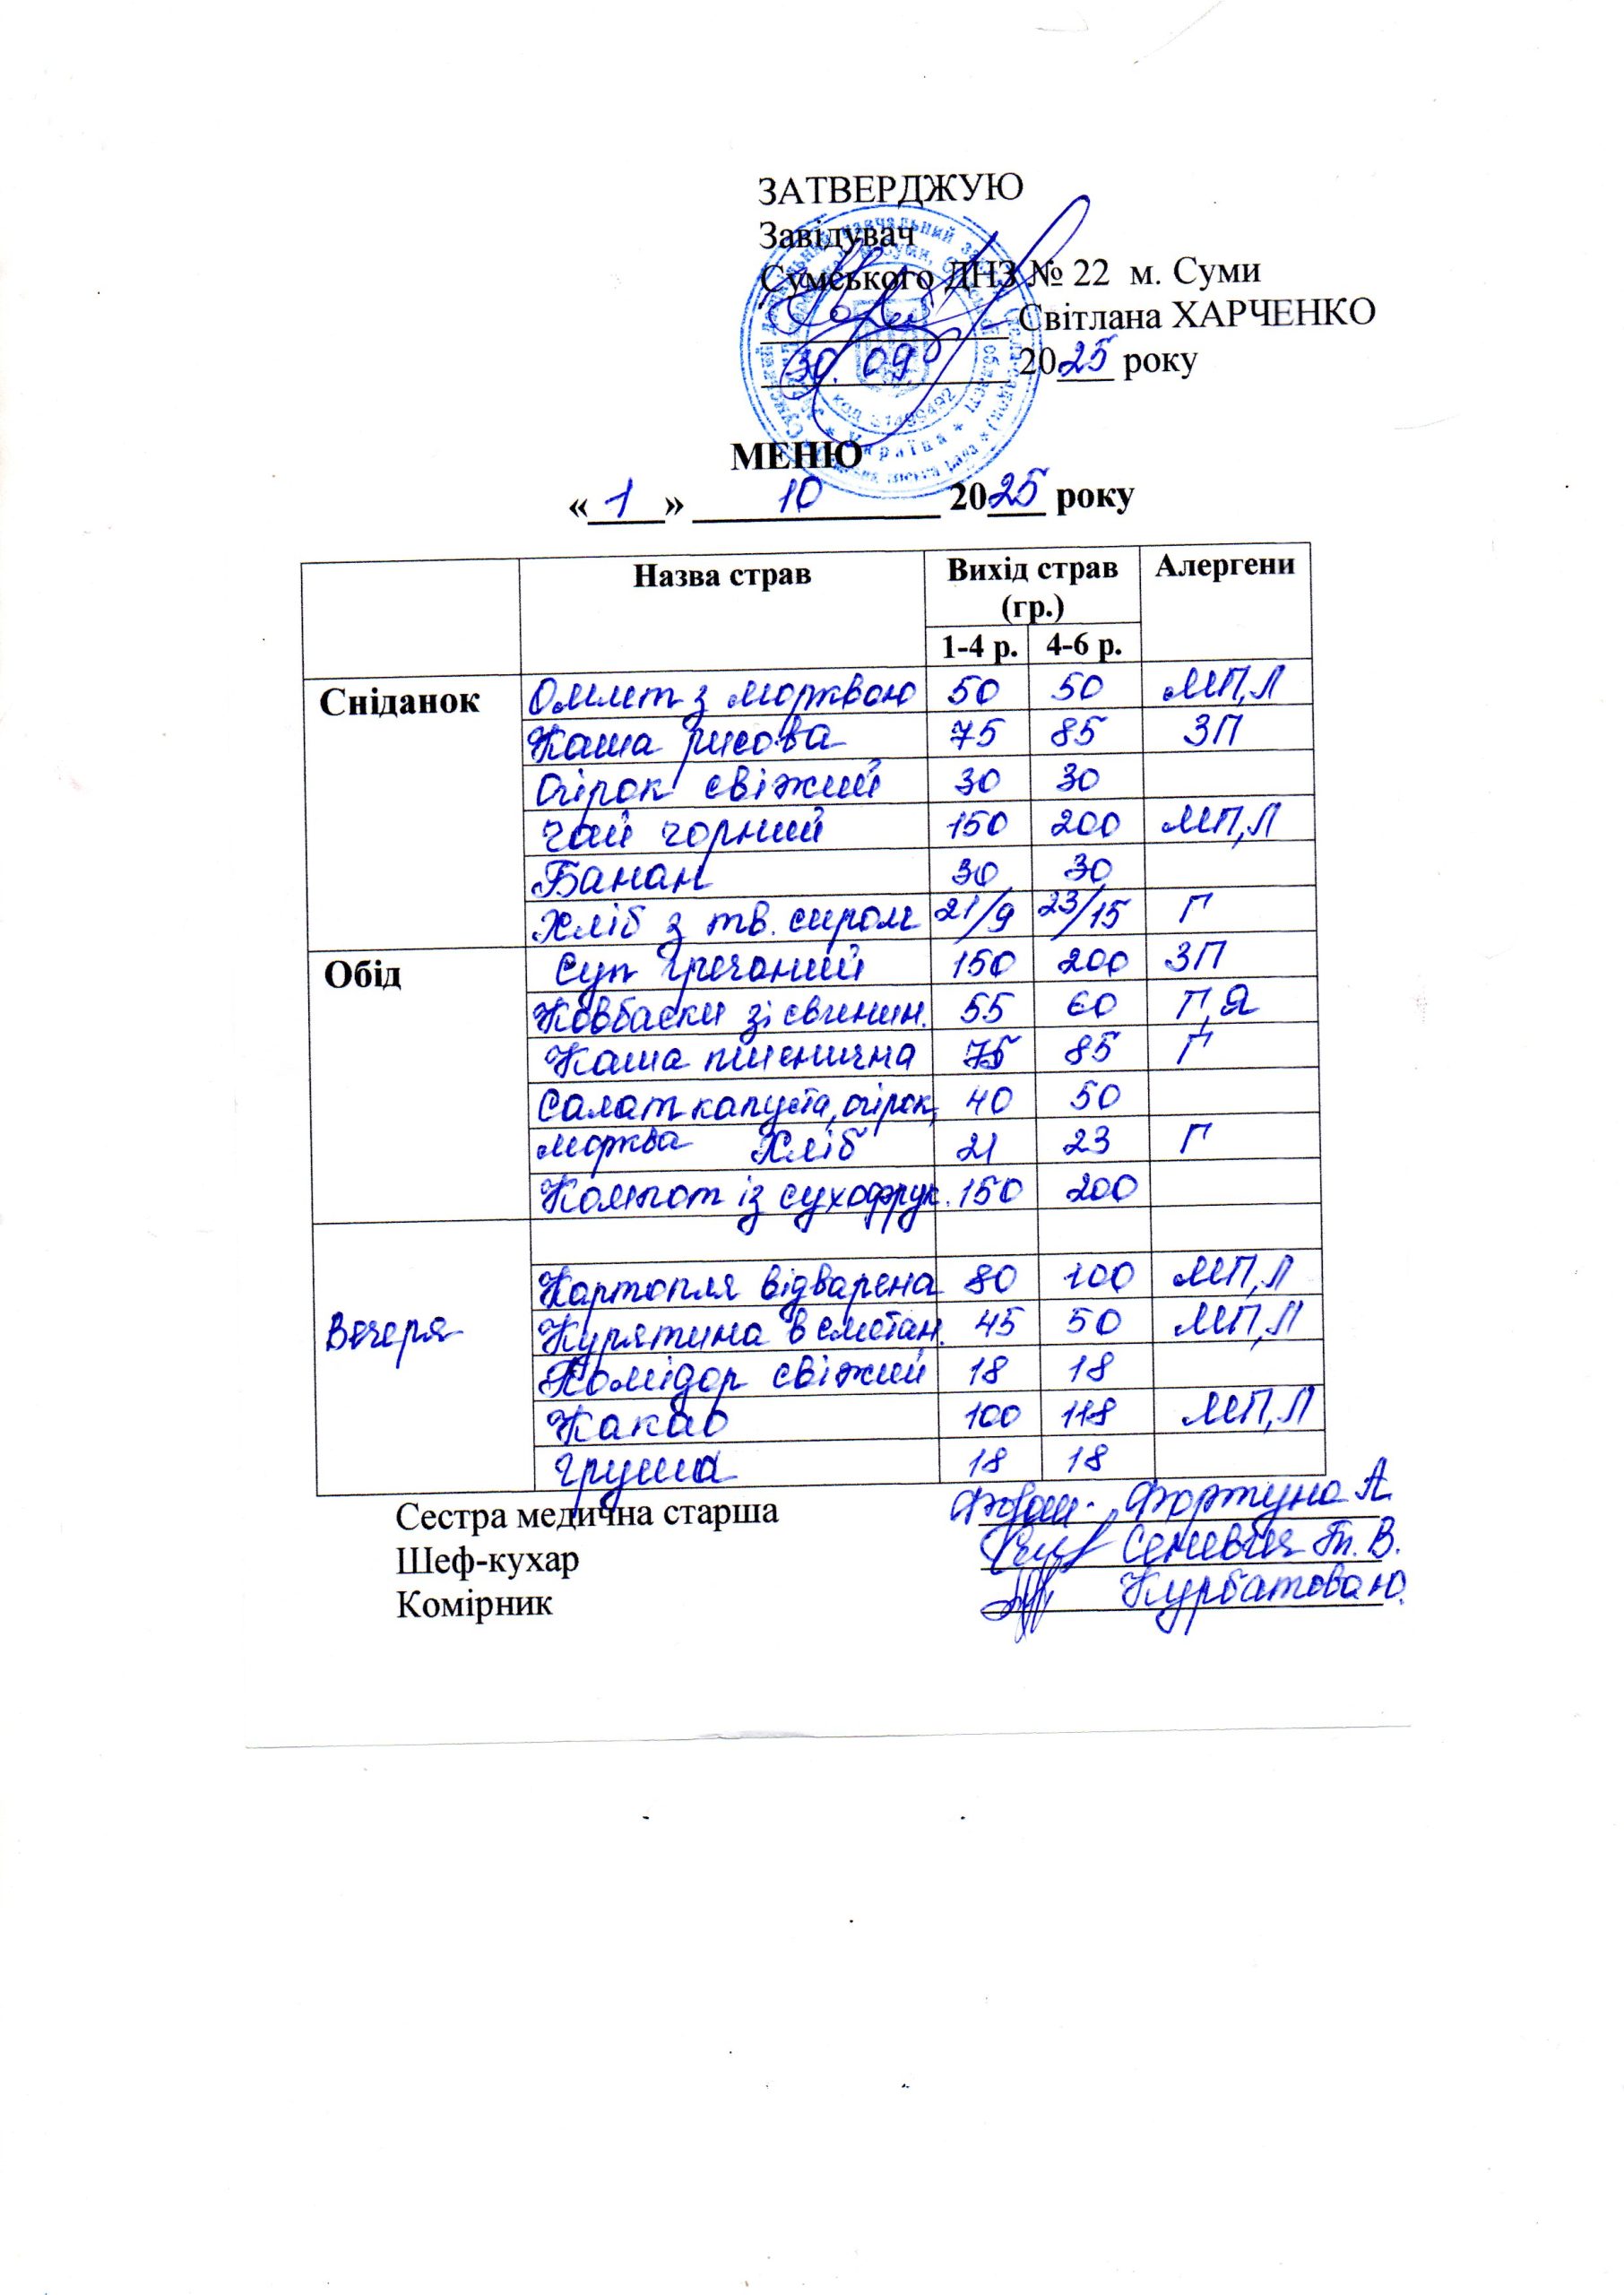 ЗАТВЕРДЖУЮ
Завідувач
Сумського ДНЗ № 22 м. Суми
Світлана ХАРЧЕНКО
30.09 2025 року
МЕНЮ
« 1 » 10 2025 року
Назва страв Вихід страв (гр.) Алергени
1-4 р. 4-6 р.
Сніданок Омлет з морквою 50 50 МП,Л
Каша рисова 75 85 ЗП
Огірок свіжий 30 30
Чай чорний 150 200 МП,Л
Банан 30 30
Хліб з тв. сиром 21/9 23/15 Г
Обід Суп гречаний 150 200 ЗП
Ковбаски зі свинин. 55 60 Г,Я
Каша пшенична 75 85 Г
Салат капуста, огірок,
40 50
морква Хліб 21 23 Г
Компот із сухофрук. 150 200
Вечеря
Картопля відварена 80 100 МП,Л
Курятина в сметан. 45 50 МП,Л
Помідор свіжий 18 18
Какао 100 118 МП,Л
Груша 18 18
Сестра медична старша Фортуна А
Шеф-кухар В.
Комірник Курбатова Ю.